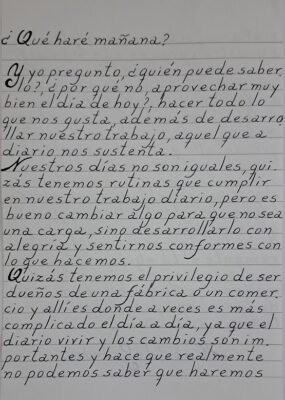 ¿Qué haré mañana?
Y yo pregunto, ¿quién puede saber
lo?, ¿por qué no, aprovechar muy
bien el día de hoy?, hacer todo lo
que nos gusta, además de desarro
llar nuestro trabajo, aquel que a
diario nos sustenta.
Nuestros días no son iguales, qui-
zás tenemos rutinas que cumplir
en nuestro trabajo diario, pero es
bueno cambiar algo para que no sea
una carga, sino desarrollarlo con
alegría y sentirnos conformes con
lo que hacemos.
Quizás tenemos el privilegio de ser
dueños de una fábrica o un comer-
cio y allí es donde a veces es más
complicado el día a día, ya que el
diario vivir y los cambios son im-
portantes y hace que realmente
no podemos saber que haremos